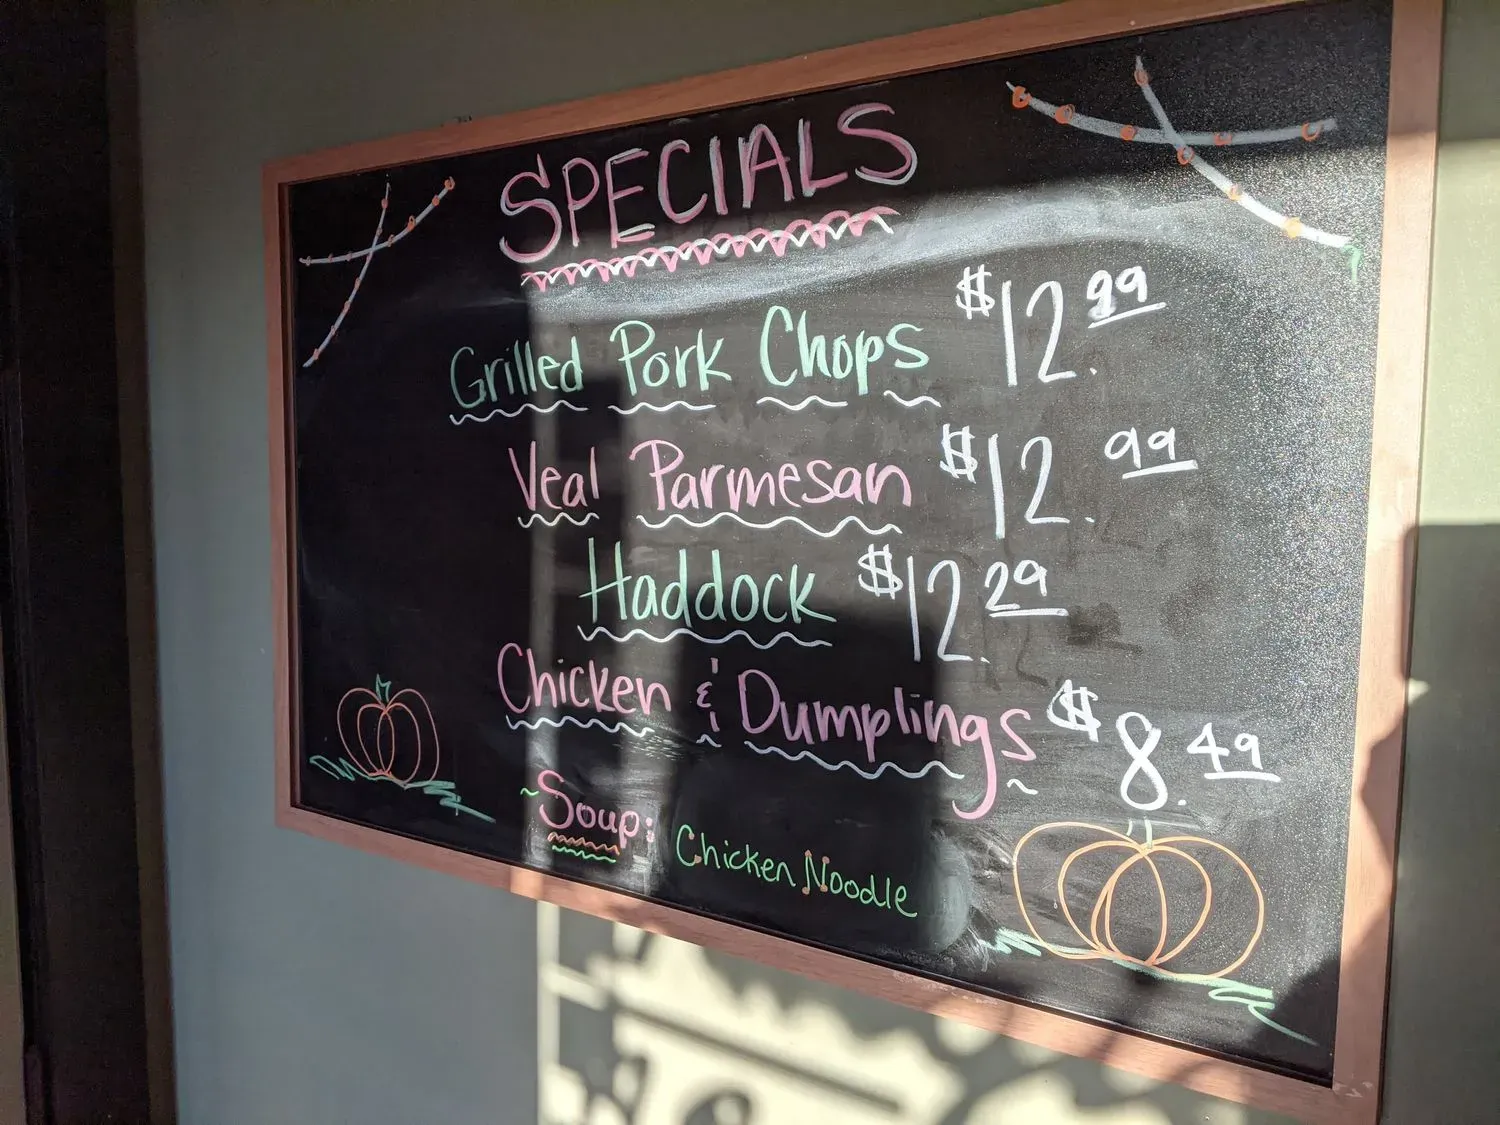 SPECIALS
Grilled Pork Chops $12.99
Veal Parmesan $12.99
Haddock $12.29
Chicken & Dumplings $8.49
~Soup: Chicken Noodle